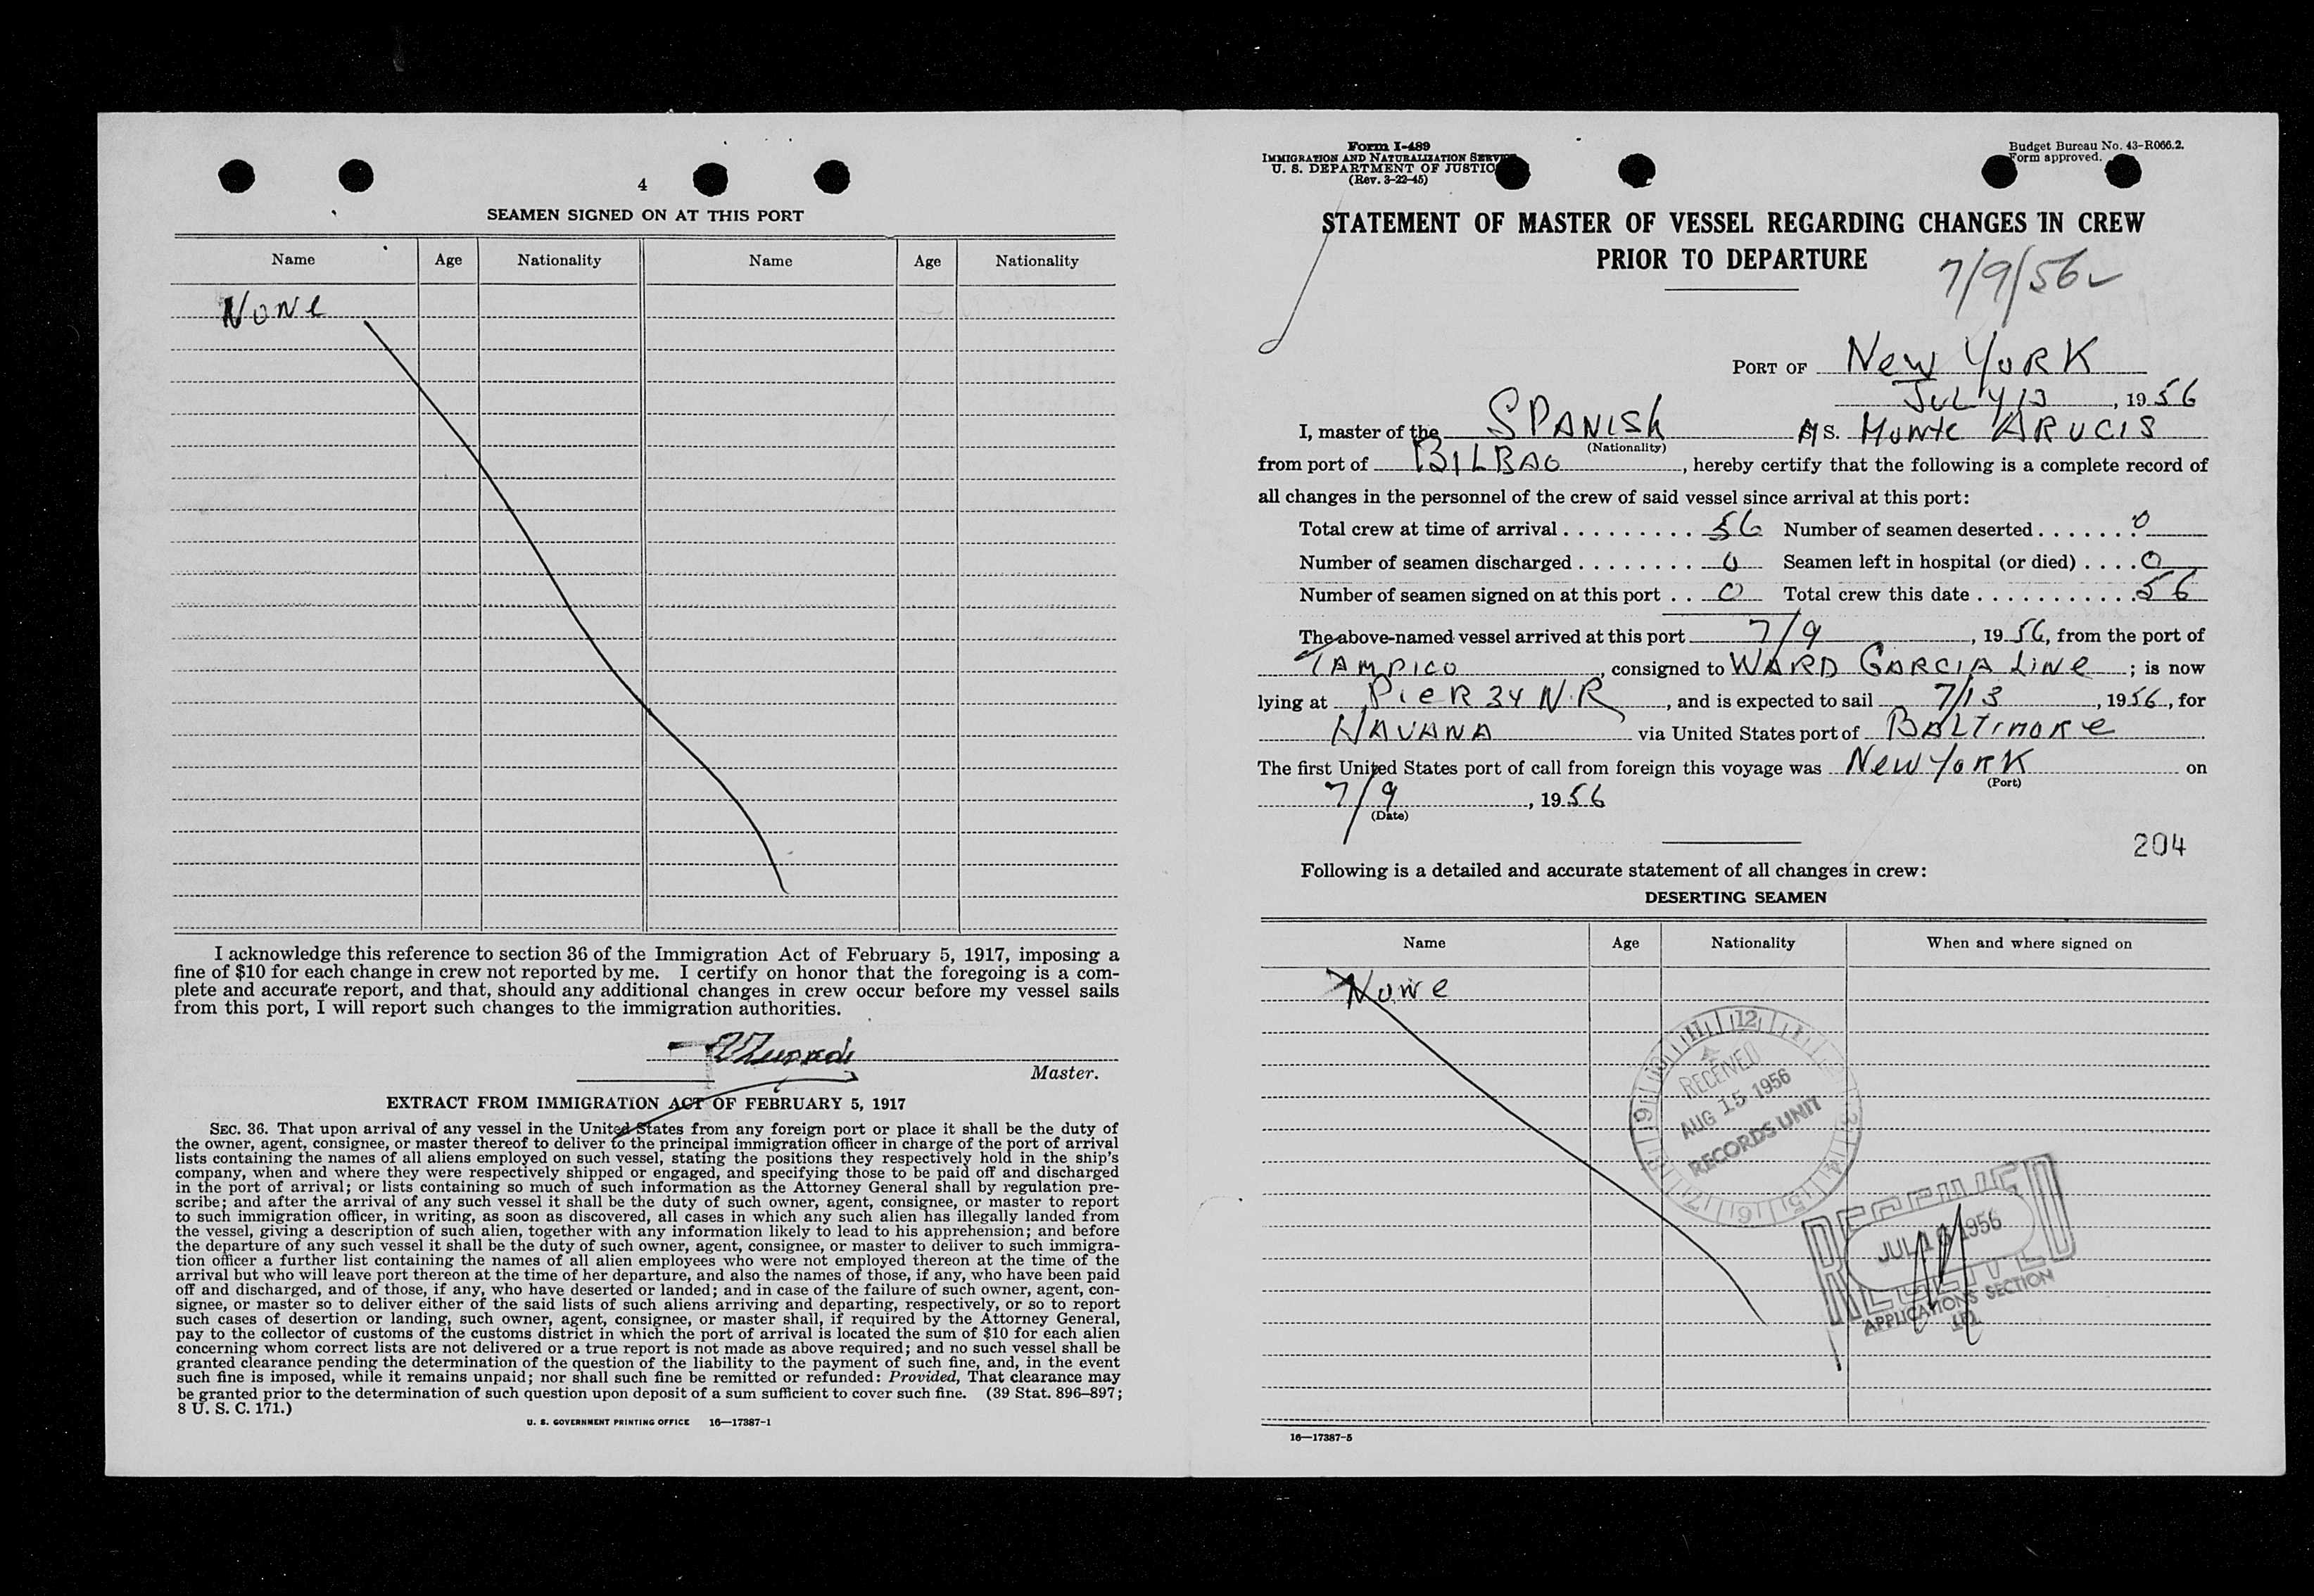 4
SEAMEN SIGNED ON AT THIS PORT
Name Age Nationality Name Age Nationality
None
I acknowledge this reference to section 36 of the Immigration Act of February 5, 1917, imposing a
fine of $10 for each change in crew not reported by me. I certify on honor that the foregoing is a com-
plete and accurate report, and that, should any additional changes in crew occur before my vessel sails
from this port, I will report such changes to the immigration authorities.
Master.
EXTRACT FROM IMMIGRATION ACT OF FEBRUARY 5, 1917
SEC. 36. That upon arrival of any vessel in the United States from any foreign port or place it shall be the duty of
the owner, agent, consignee, or master thereof to deliver to the principal immigration officer in charge of the port of arrival
lists containing the names of all aliens employed on such vessel, stating the positions they respectively hold in the ship's
company, when and where they were respectively shipped or engaged, and specifying those to be paid off and discharged
in the port of arrival; or lists containing so much of such information as the Attorney General shall by regulation pre-
scribe; and after the arrival of any such vessel it shall be the duty of such owner, agent, consignee, or master to report
to such immigration officer, in writing, as soon as discovered, all cases in which any such alien has illegally landed from
the vessel, giving a description of such alien, together with any information likely to lead to his apprehension; and before
the departure of any such vessel it shall be the duty of such owner, agent, consignee, or master to deliver to such immigra-
tion officer a further list containing the names of all alien employees who were not employed thereon at the time of the
arrival but who will leave port thereon at the time of her departure, and also the names of those, if any, who have been paid
off and discharged, and of those, if any, who have deserted or landed; and in case of the failure of such owner, agent, con-
signee, or master so to deliver either of the said lists of such aliens arriving and departing, respectively, or so to report
such cases of desertion or landing, such owner, agent, consignee, or master shall, if required by the Attorney General,
pay to the collector of customs of the customs district in which the port of arrival is located the sum of $10 for each alien
concerning whom correct lists are not delivered or a true report is not made as above required; and no such vessel shall be
granted clearance pending the determination of the question of the liability to the payment of such fine, and, in the event
such fine is imposed, while it remains unpaid; nor shall such fine be remitted or refunded: Provided, That clearance may
be granted prior to the determination of such question upon deposit of a sum sufficient to cover such fine. (39 Stat. 896–897;
8 U. S. C. 171.)
U. S. GOVERNMENT PRINTING OFFICE 16—17387-1
Form I-489
IMMIGRATION AND NATURALIZATION SERVICE
U. S. DEPARTMENT OF JUSTICE
(Rev. 3-22-45)
Budget Bureau No. 43-R066.2.
Form approved.
STATEMENT OF MASTER OF VESSEL REGARDING CHANGES IN CREW
PRIOR TO DEPARTURE
7/9/56
PORT OF New YORK
JULY 13, 1956
I, master of the SPANISH M S. Monte ARUCIS
(Nationality)
from port of BILBAO, hereby certify that the following is a complete record of
all changes in the personnel of the crew of said vessel since arrival at this port:
Total crew at time of arrival 56 Number of seamen deserted 0
Number of seamen discharged 0 Seamen left in hospital (or died) 0
Number of seamen signed on at this port 0 Total crew this date 56
The above-named vessel arrived at this port 7/9, 1956, from the port of
TAMPICO, consigned to WARD GARCIA LINE; is now
lying at PIER 34 N.R, and is expected to sail 7/13, 1956, for
HAVANA via United States port of BALTIMORE
The first United States port of call from foreign this voyage was New YORK on
(Port)
7/9, 1956
(Date)
204
Following is a detailed and accurate statement of all changes in crew:
DESERTING SEAMEN
Name Age Nationality When and where signed on
None
RECEIVED
AUG 15 1956
RECORDS UNIT
RECEIVED
JUL 16 1956
APPLICATIONS SECTION
16—17387-5